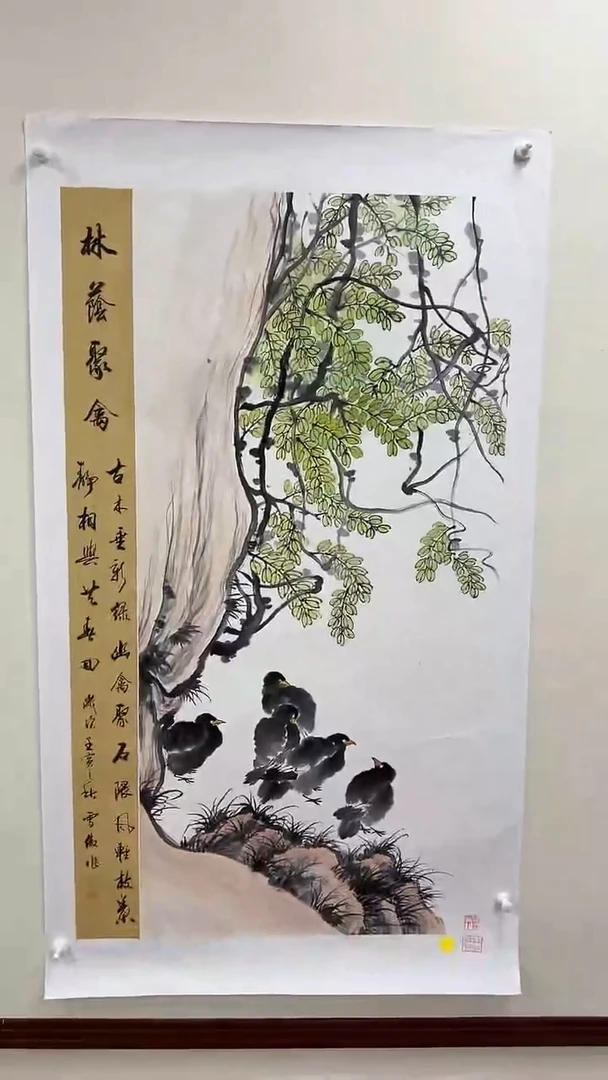 林蔭聚禽
古木垂新綠幽禽聚石隈風輕枝葉
靜相與共春回
歲次壬寅之秋雪作